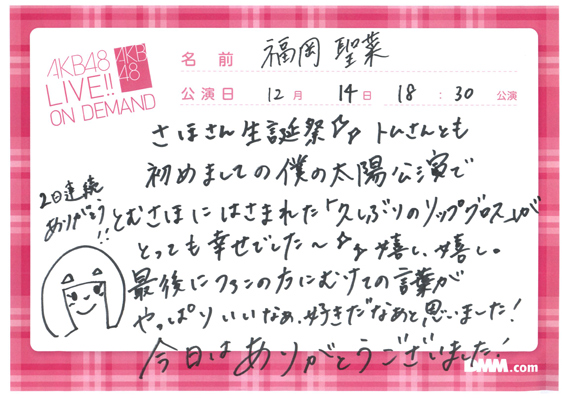 AKB48
LIVE!!
ON DEMAND
AKB
48
名前 福岡 聖菜
公演日 12月 14日 18:30 公演
さほさん生誕祭 トムさんとも
初めましての僕の太陽公演で
2日連続
ありがとう!!
とむさほにはさまれた「久しぶりのリップグロス」が
とっても幸せでした〜 嬉しい嬉し。
最後にファンの方にむけての言葉が
やっぱりいいなぁ、好きだなぁと思いました!
今日はありがとうございました!
DMM.com